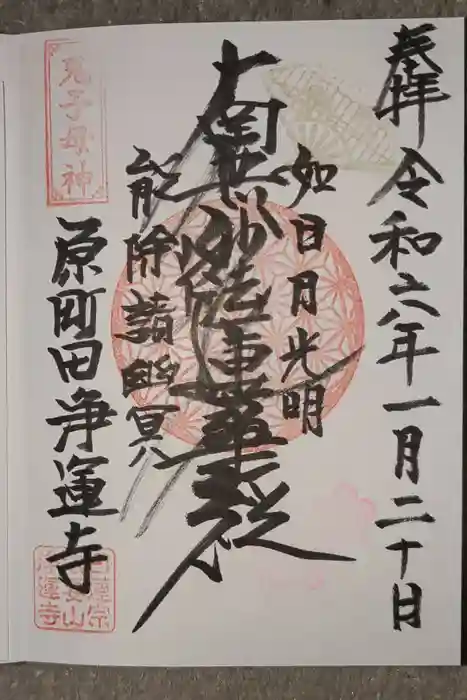 奉拝 令和六年一月二十日
如日月光明
南無妙法蓮華経
能除諸幽冥
鬼子母神
原町田浄運寺
日蓮宗
浄運寺